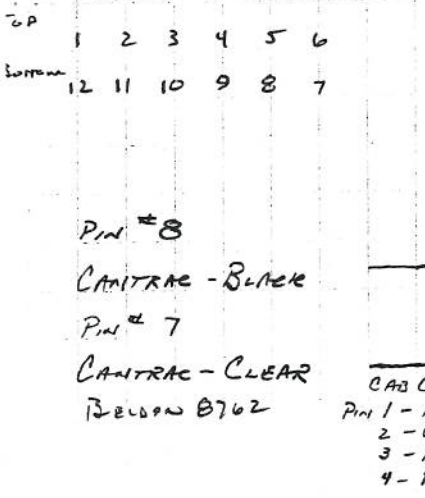 TOP 1 2 3 4 5 6
Bottom 12 11 10 9 8 7
PIN #8
CANTRAC - BLACK
PIN # 7
CANTRAC - CLEAR
BELDEN 8762
CAB
PIN 1 -
2 -
3 -
4 -